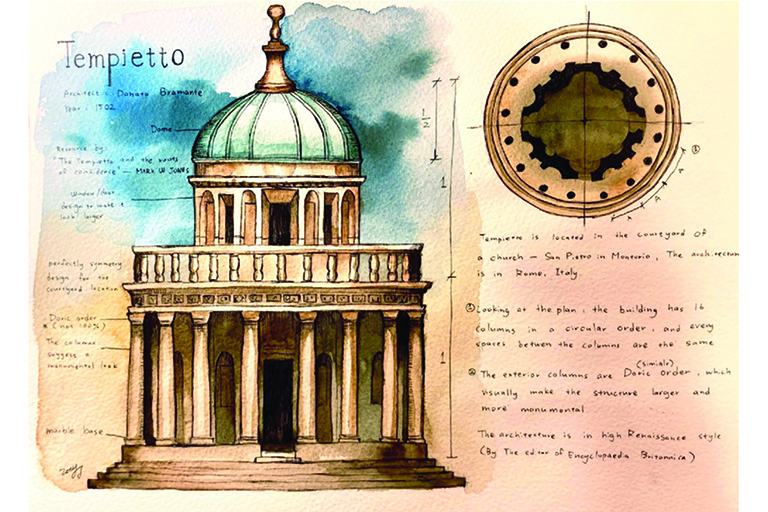 Tempietto
Architect : Donato Bramante
Year : 1502
Dome
Resource by:
"The Tempietto and the roots
of coincidence" — MARK W JONES
Window/door
design to make it
look larger
perfectly symmetry
design for the
courtyard location
Doric order
* (not 100%)
The columns
suggest a
monumental look
marble base
1/2
1
1
①
Tempietto is located in the courtyard of
a church — San Pietro in Montorio, The architecture
is in Rome, Italy.
① Looking at the plan : the building has 16
columns in a circular order, and every
spaces betwen the columns are the same
(simialr)
② The exterior columns are Doric order, which
visually make the structure larger and
more monumental
The architecture is in high Renaissance style
(By The editor of Encyclopaedia Britannica)